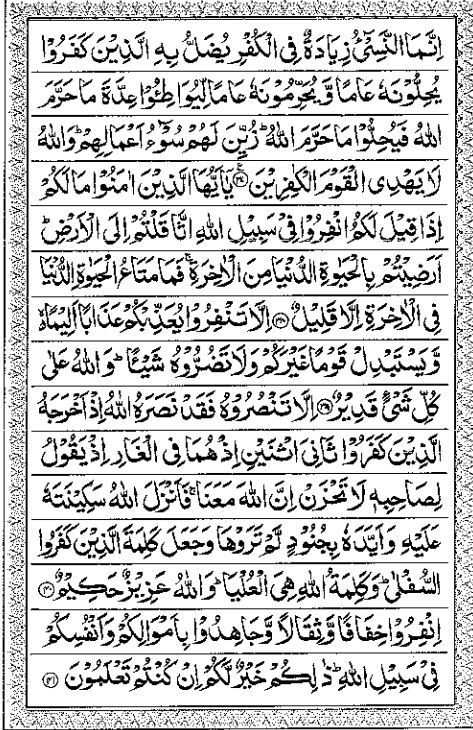 اِنَّمَا النَّسِیْٓءُ زِیَادَةٌ فِی الْكُفْرِ یُضَلُّ بِهِ الَّذِیْنَ كَفَرُوْا
یُحِلُّوْنَهٗ عَامًا وَّیُحَرِّمُوْنَهٗ عَامًا لِّیُوَاطِـُٔوْا عِدَّةَ مَا حَرَّمَ
اللّٰهُ فَیُحِلُّوْا مَا حَرَّمَ اللّٰهُ ؕ زُیِّنَ لَهُمْ سُوْٓءُ اَعْمَالِهِمْ ؕ وَاللّٰهُ
لَا یَهْدِی الْقَوْمَ الْكٰفِرِیْنَ ۝ یٰۤاَیُّهَا الَّذِیْنَ اٰمَنُوْا مَا لَكُمْ
اِذَا قِیْلَ لَكُمُ انْفِرُوْا فِیْ سَبِیْلِ اللّٰهِ اثَّاقَلْتُمْ اِلَی الْاَرْضِ ؕ
اَرَضِیْتُمْ بِالْحَیٰوةِ الدُّنْیَا مِنَ الْاٰخِرَةِ ۚ فَمَا مَتَاعُ الْحَیٰوةِ الدُّنْیَا
فِی الْاٰخِرَةِ اِلَّا قَلِیْلٌ ۝ اِلَّا تَنْفِرُوْا یُعَذِّبْكُمْ عَذَابًا اَلِیْمًا ۙ
وَّیَسْتَبْدِلْ قَوْمًا غَیْرَكُمْ وَلَا تَضُرُّوْهُ شَیْـًٔا ؕ وَاللّٰهُ عَلٰی
كُلِّ شَیْءٍ قَدِیْرٌ ۝ اِلَّا تَنْصُرُوْهُ فَقَدْ نَصَرَهُ اللّٰهُ اِذْ اَخْرَجَهُ
الَّذِیْنَ كَفَرُوْا ثَانِیَ اثْنَیْنِ اِذْ هُمَا فِی الْغَارِ اِذْ یَقُوْلُ
لِصَاحِبِهٖ لَا تَحْزَنْ اِنَّ اللّٰهَ مَعَنَا ۚ فَاَنْزَلَ اللّٰهُ سَكِیْنَتَهٗ
عَلَیْهِ وَاَیَّدَهٗ بِجُنُوْدٍ لَّمْ تَرَوْهَا وَجَعَلَ كَلِمَةَ الَّذِیْنَ كَفَرُوا
السُّفْلٰی ؕ وَكَلِمَةُ اللّٰهِ هِیَ الْعُلْیَا ؕ وَاللّٰهُ عَزِیْزٌ حَكِیْمٌ ۝۴۰
اِنْفِرُوْا خِفَافًا وَّثِقَالًا وَّجَاهِدُوْا بِاَمْوَالِكُمْ وَاَنْفُسِكُمْ
فِیْ سَبِیْلِ اللّٰهِ ؕ ذٰلِكُمْ خَیْرٌ لَّكُمْ اِنْ كُنْتُمْ تَعْلَمُوْنَ ۝۴۱